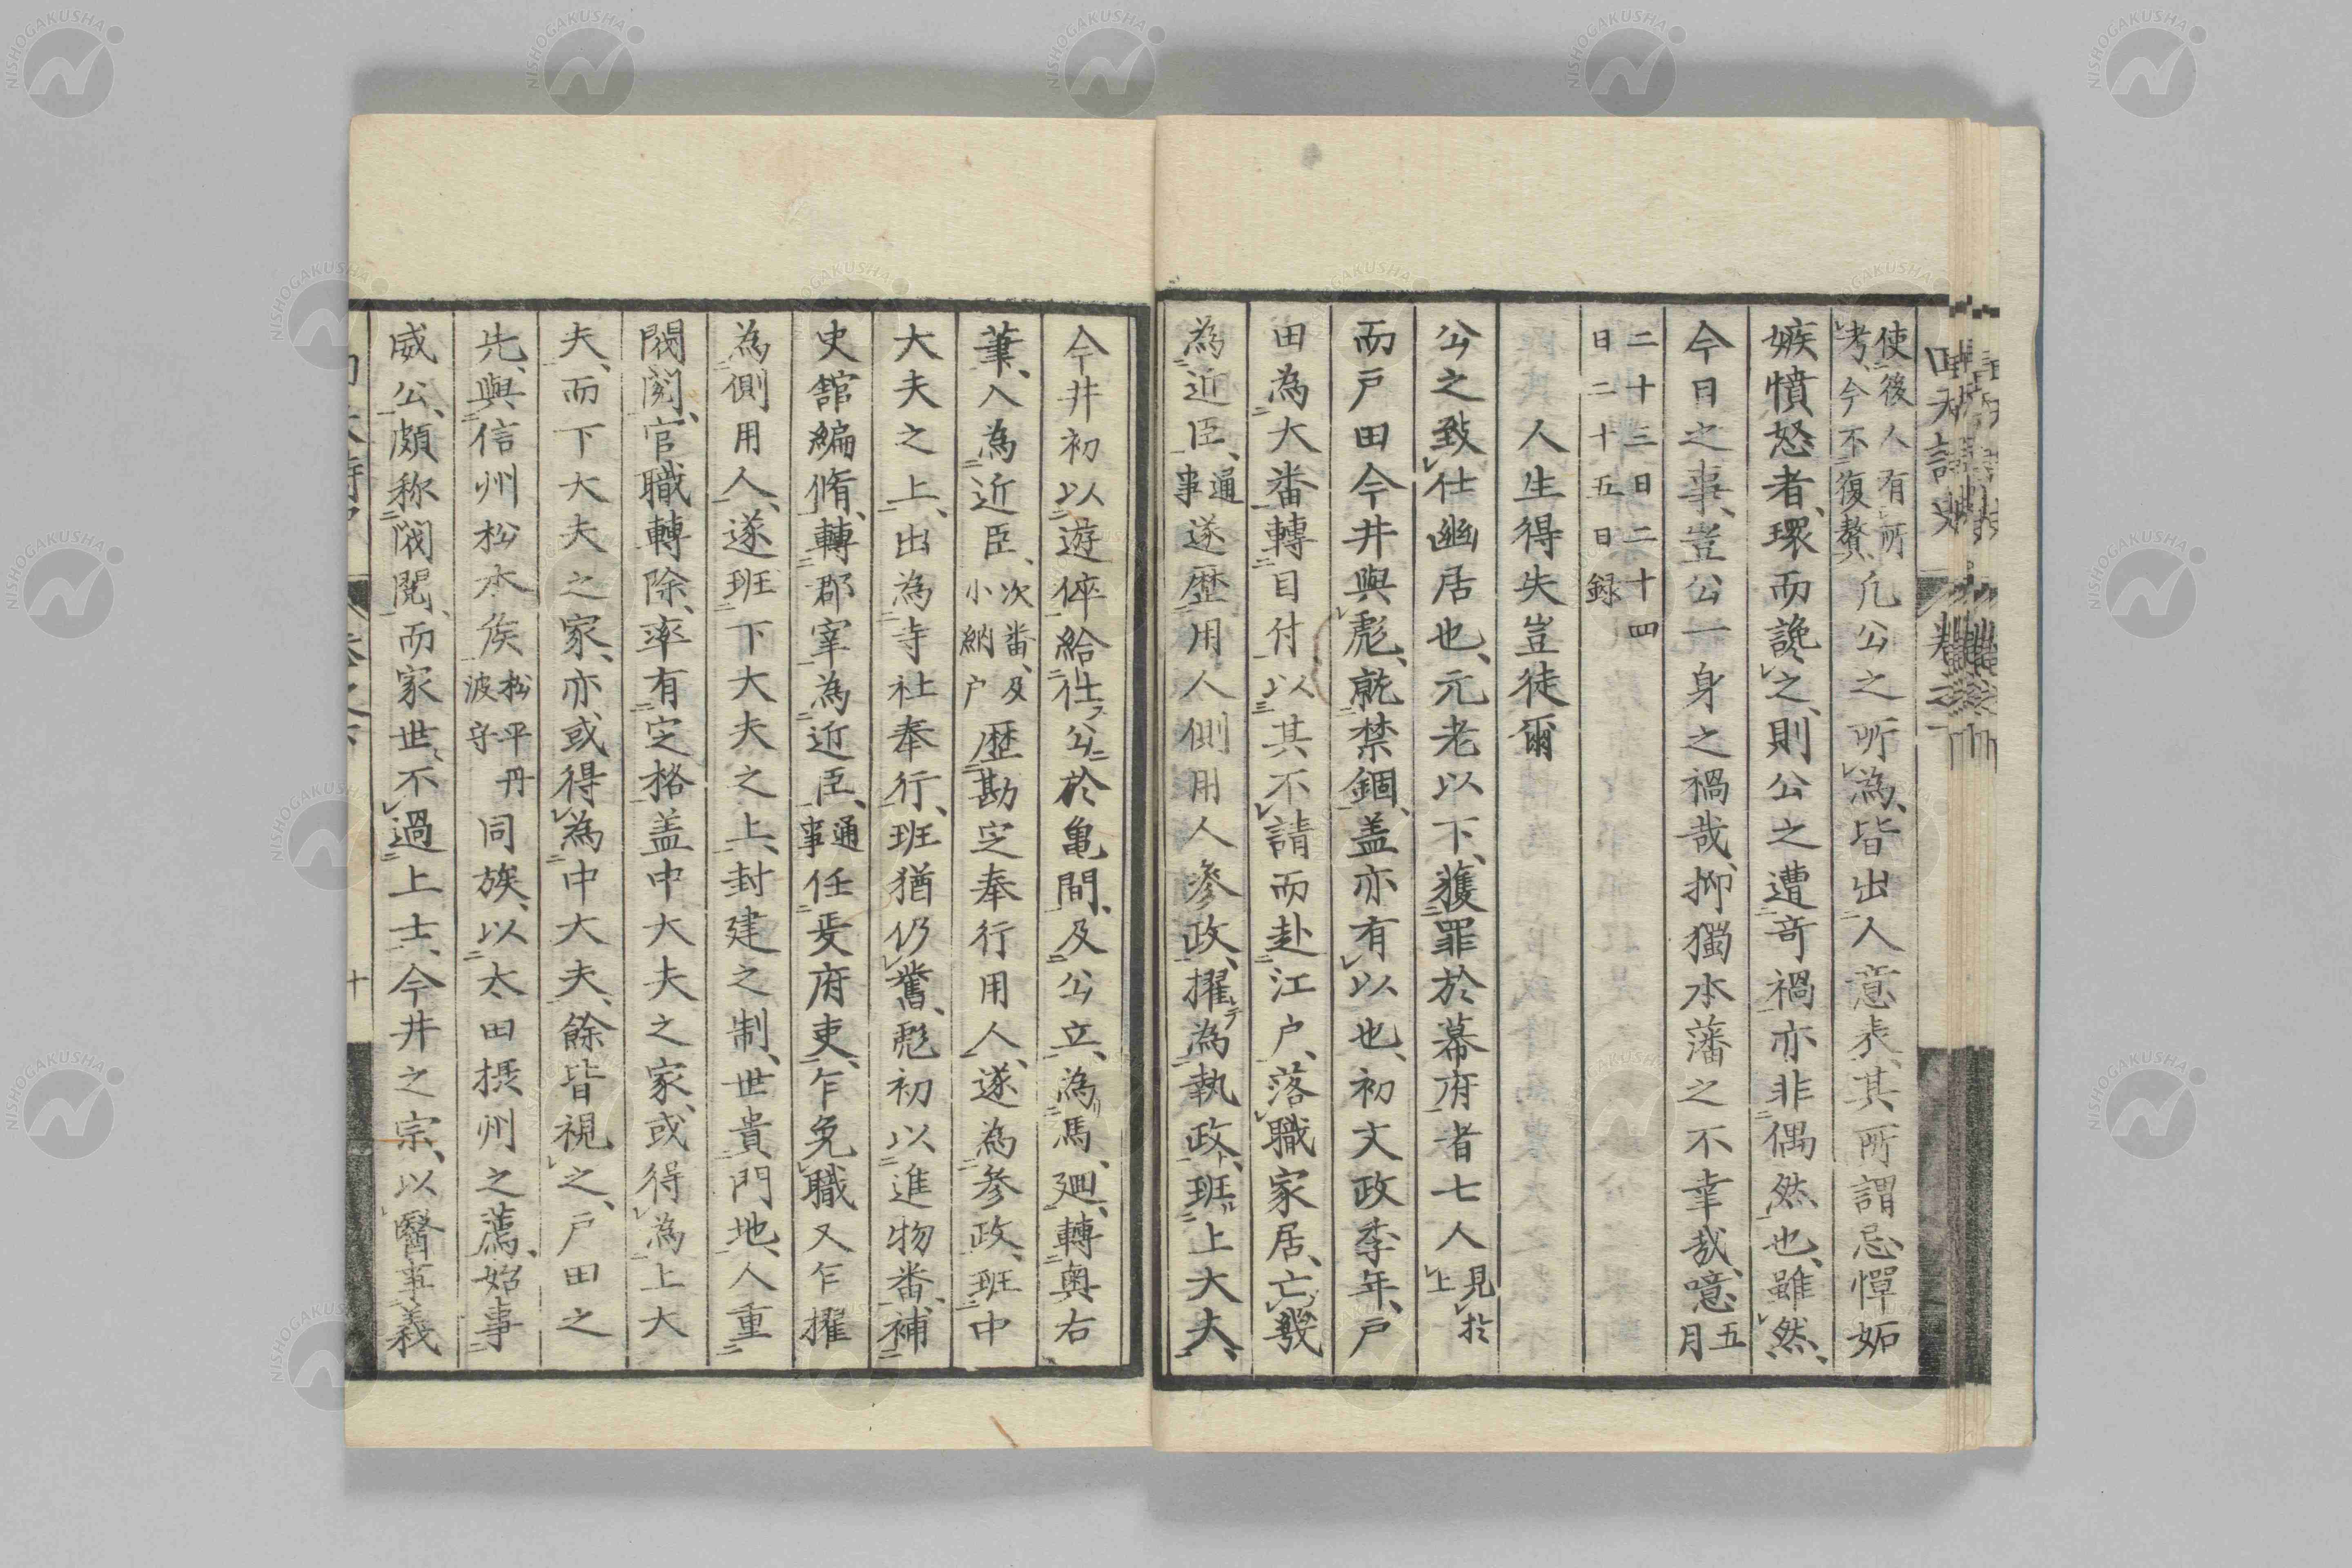 使後人有所
考、今不復贅、凢公之所為、皆出人意表、其所謂忌憚妬
嫉憤怒者、環而讒之、則公之遭奇禍、亦非偶然也、雖然、
今日之事、豈公一身之禍哉、抑獨水藩之不幸哉、噫、五月
二十三日二十四
日二十五日録
人生得失豈徒爾
公之致仕幽居也、元老以下、獲罪於幕府者七人見於上
而戸田今井與彪、就禁錮、盖亦有以也、初文政季年、戸
田為大番轉目付、以其不請而赴江戸、落職家居、亡㡬
為近臣、通事遂歴用人側用人參政、擢為執政、班上大夫、
今井初以遊倅給仕公於亀間、及公立、為馬廻、轉奥右
筆、入為近臣、次番、及小納戸歴勘定奉行用人、遂為參政、班中
大夫之上、出為寺社奉行、班猶仍舊、彪初以進物番、補
史館編脩、轉郡宰為近臣、通事任妟府吏、乍免職又乍擢
為側用人、遂班下大夫之上、封建之制、世貴門地、人重
閥閲、官職轉除、率有定格、盖中大夫之家、或得為上大
夫、而下大夫之家、亦或得為中大夫、餘皆視之、戸田之
先、與信州松本侯松平丹波守同族、以太田摂州之薦、始事
威公、頗称閥閲、而家世不過上士、今井之宗、以醫事義
十
NISHOGAKUSHA